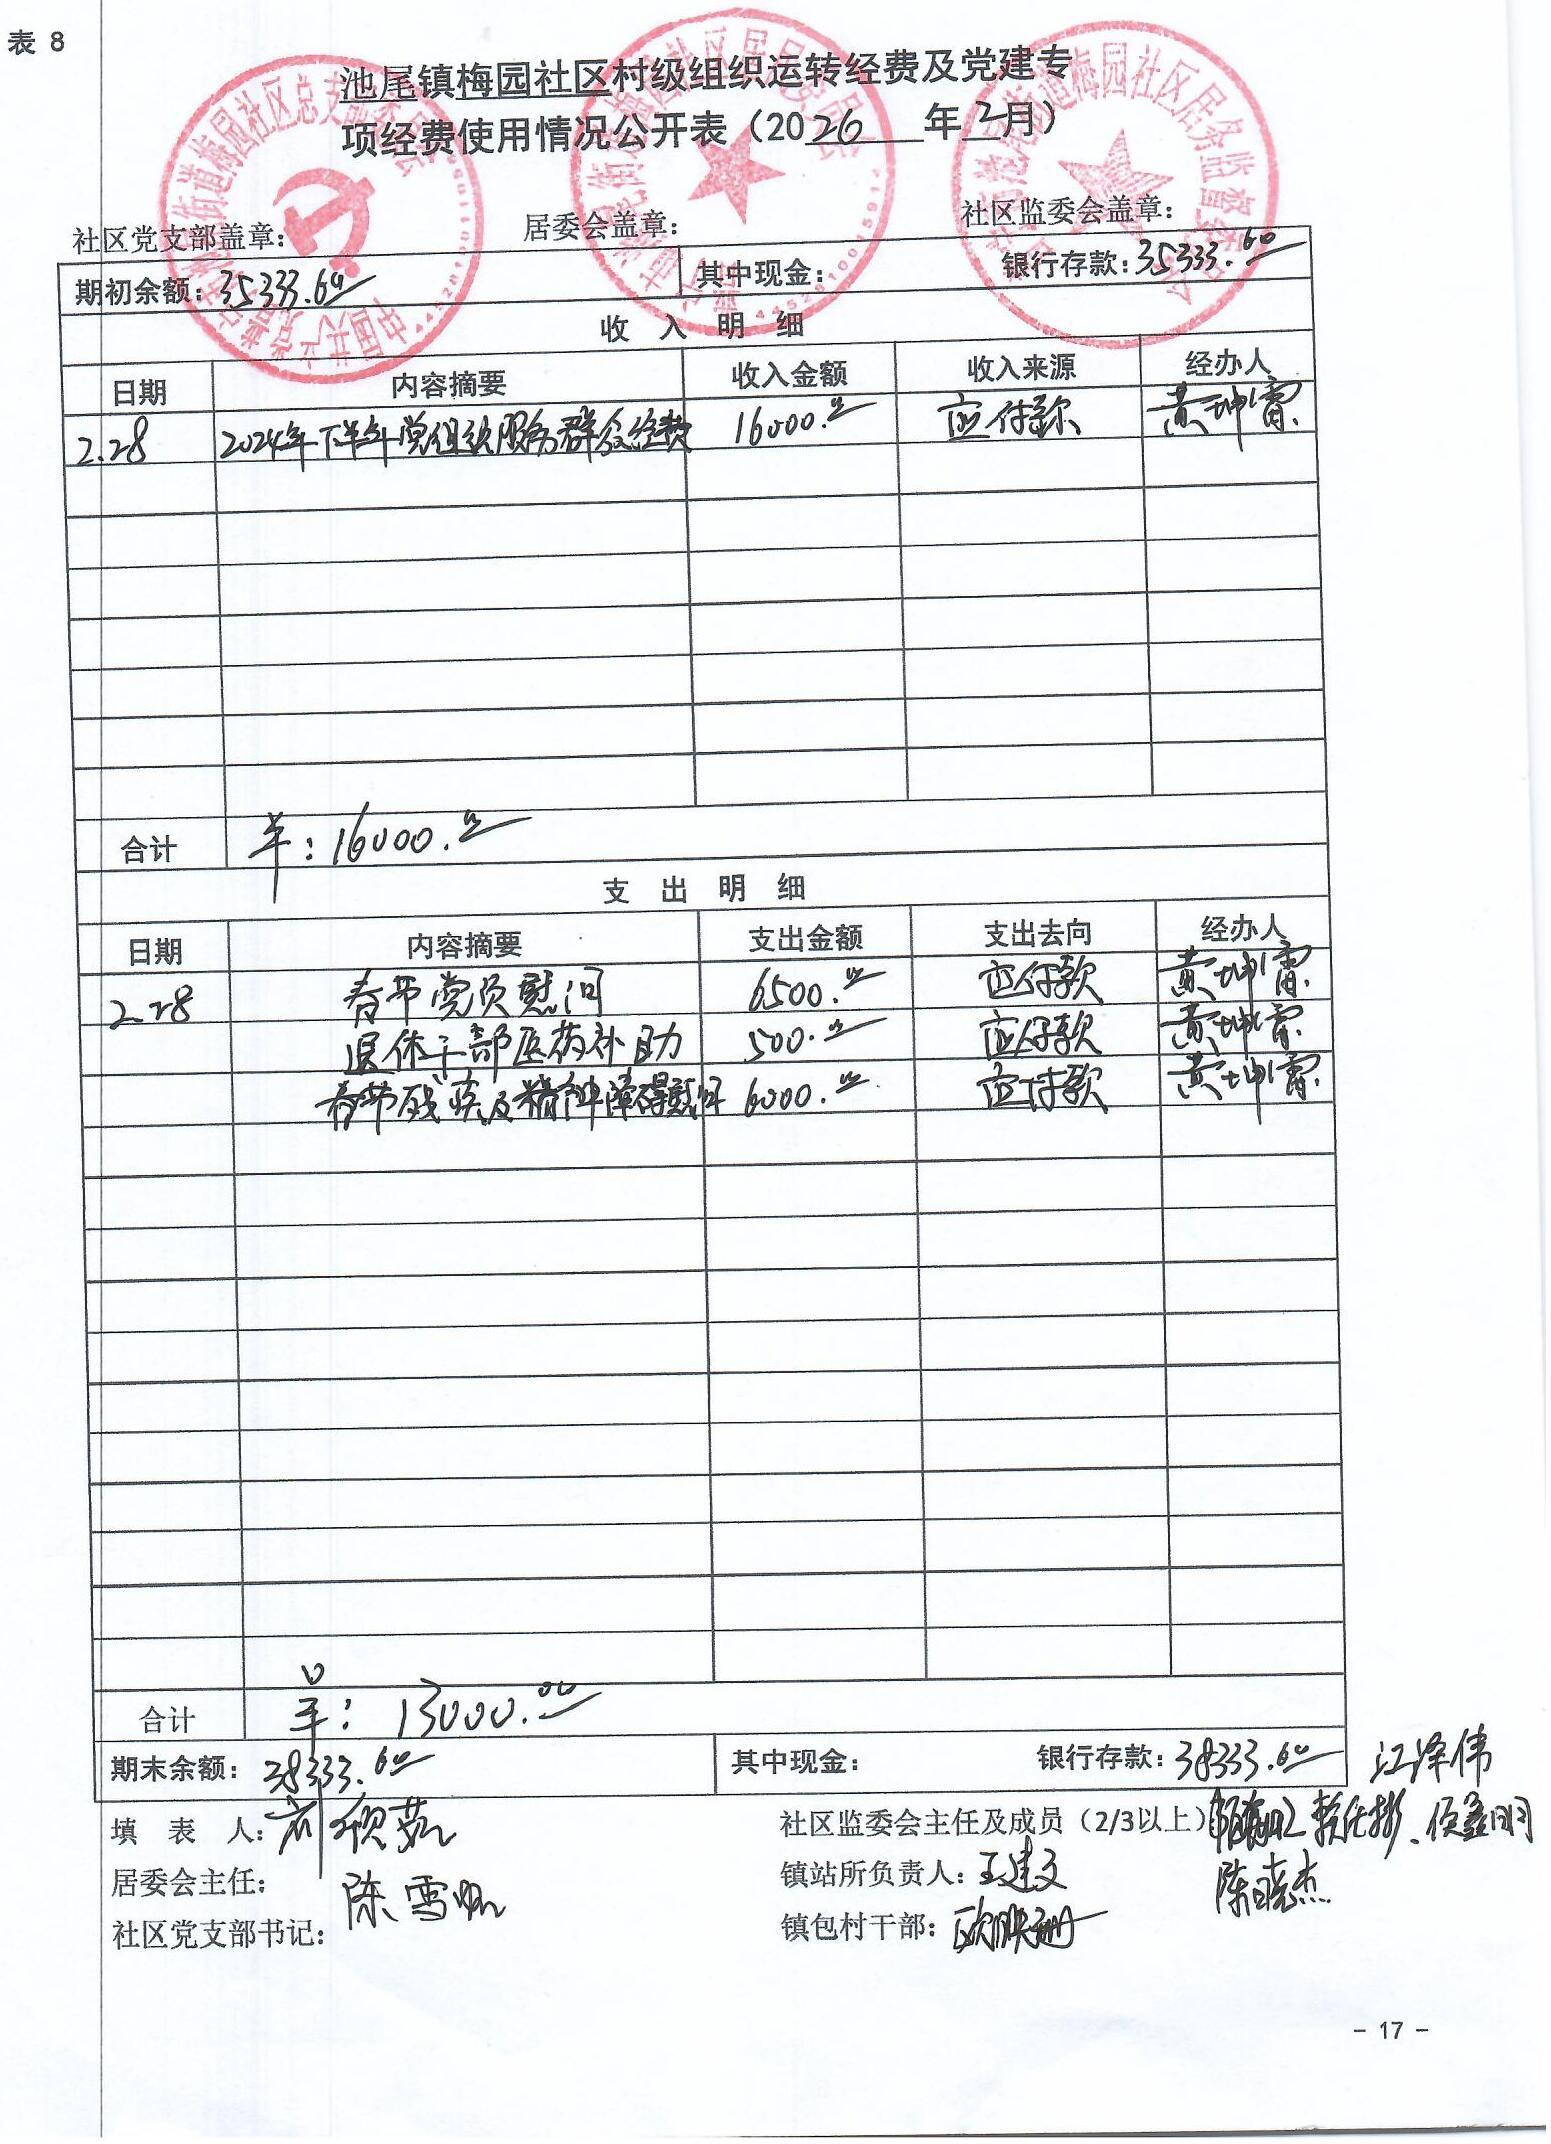 表 8
池尾镇梅园社区村级组织运转经费及党建专
项经费使用情况公开表（2026 年2月）
社区党支部盖章： 居委会盖章： 社区监委会盖章：
期初余额：35333.60 其中现金： 银行存款：35333.60
收 入 明 细
日期 内容摘要 收入金额 收入来源 经办人
2.28 2024年下半年党组织服务群众经费 16000.00 应付款 黄坤雷
合计 羊：16000.00
支 出 明 细
日期 内容摘要 支出金额 支出去向 经办人
2.28 春节党员慰问 6500.00 应付款 黄坤雷
退休干部医药补助 500.00 应付款 黄坤雷
春节残疾及精神障碍慰问 6000.00 应付款 黄坤雷
合计 羊：13000.00
期末余额：38333.60 其中现金： 银行存款：38333.60 江泽伟
填 表 人： 社区监委会主任及成员（2/3以上）
居委会主任： 镇站所负责人：王建文 陈晓杰
陈雪
社区党支部书记： 镇包村干部：欧
- 17 -